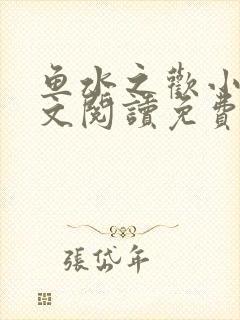 鱼水之歡小
文閱讀免費
張岱年